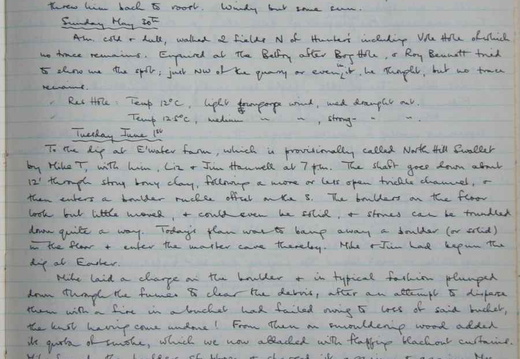 threw him back to roost. Windy but some sun.
Sunday May 30th
Am. cold & dull, walked 2 fields N of Hunter's including Vole Hole of which
no trace remains. Enquired at the Belfry after Bog Hole, & Roy Bennett tried
to show me the spot; just NW of the quarry or even in it, he thought, but no trace
remains.
Rat Hole: Temp 12°C, light wind, med draught out.
Temp 12.5°C, medium " " , strong " "
Tuesday June 1st
To the dig at E'water farm, which is provisionally called North Hill Swallet
by Mike T, with him, Liz & Jim Hanwell at 7 pm. The shaft goes down about
12' through stony bony clay, following a more or less open trickle channel, &
then enters a boulder ruckle offset on the S. The boulders on the floor
look but little moved, & could even be solid, & stones can be trundled
down quite a way. Today's plan was to bang away a boulder (or solid)
in the floor & enter the master cave thereby. Mike & Jim had begun the
dig at Easter.
Mike laid a charge on the boulder & in typical fashion plunged
down through the fumes to clear the debris, after an attempt to disperse
them with a fire in a bucket had failed owing to loss of said bucket,
the knot having come undone! From then on smouldering wood added
its quota of smoke, which we now attacked with flapping blackout curtains.